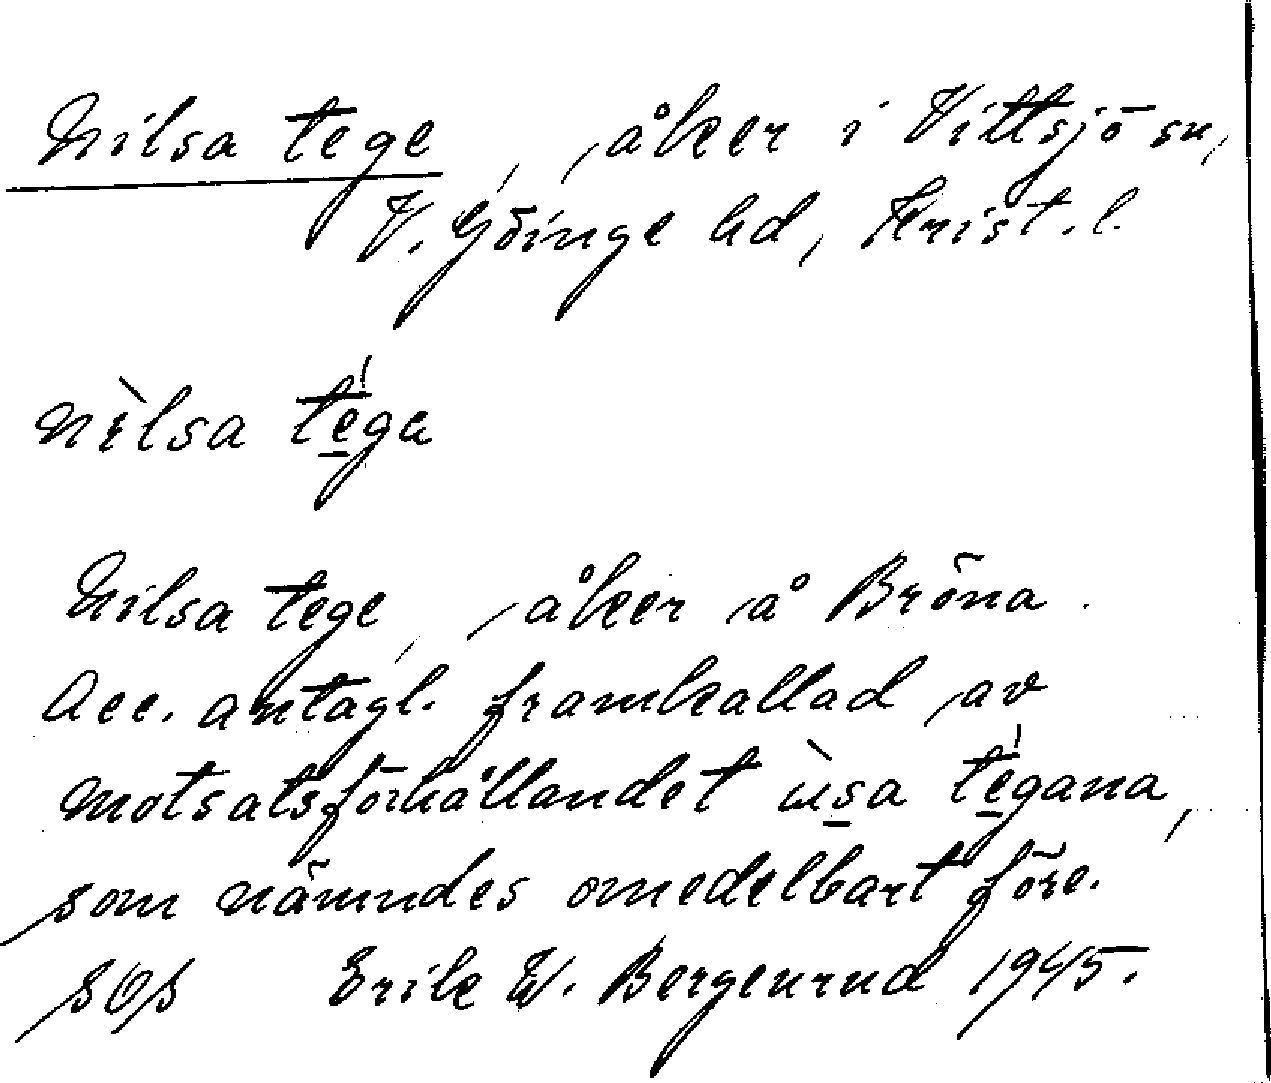 Nilsa tege, åker i Vittsjö sn,
V. Göinge hd, Krist. l.
nìlsa té̱ga
Nilsa tege, åker å Bröna.
Acc. antagl. framkallad av
motsatsförhållandet ùs̱a té̱gana,
som nämndes omedelbart före.
Erik W. Bergenrud 1945.